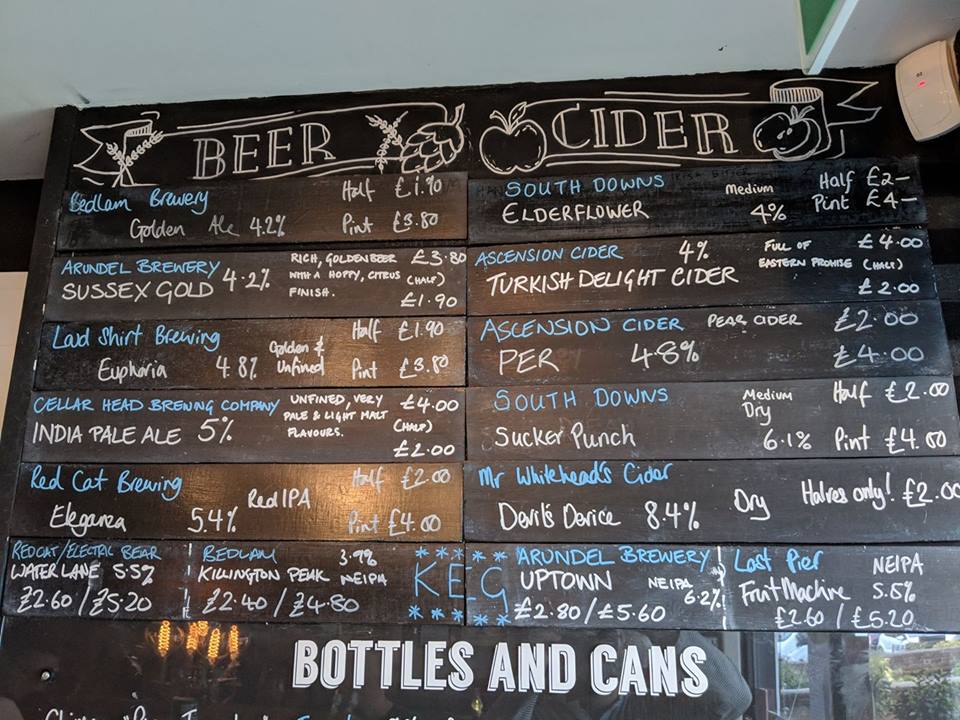 BEER
Bedlam Brewery Half £1.90
Golden Ale 4.2% Pint £3.80
ARUNDEL BREWERY 4.2% RICH, GOLDEN BEER £3.80
SUSSEX GOLD WITH A HOPPY, CITRUS (HALF)
FINISH. £1.90
Loud Shirt Brewing Half £1.90
Euphoria 4.8% Golden & Unfined Pint £3.80
CELLAR HEAD BREWING COMPANY UNFINED, VERY £4.00
INDIA PALE ALE 5% PALE & LIGHT MALT (HALF)
FLAVOURS. £2.00
Red Cat Brewing Half £2.00
Eleganza 5.4% Red IPA Pint £4.00
CIDER
SOUTH DOWNS Medium Half £2-
ELDERFLOWER 4% Pint £4-
ASCENSION CIDER 4% FULL OF £4.00
TURKISH DELIGHT CIDER EASTERN PROMISE (HALF)
£2.00
ASCENSION CIDER PEAR CIDER £2.00
PER 4.8% £4.00
SOUTH DOWNS Medium Dry Half £2.00
Sucker Punch 6.1% Pint £4.00
Mr Whitehead's Cider
Devil's Device 8.4% Dry Halves only! £2.00
KEG
RED CAT/ELECTRIC BEAR
WATER LANE 5.5%
£2.60/£5.20
BEDLAM 3.9%
KILLINGTON PEAK NEIPA
£2.40/£4.80
ARUNDEL BREWERY
UPTOWN NEIPA 6.2%
£2.80/£5.60
Last Pier NEIPA
Fruit Machine 5.5%
£2.60/£5.20
BOTTLES AND CANS